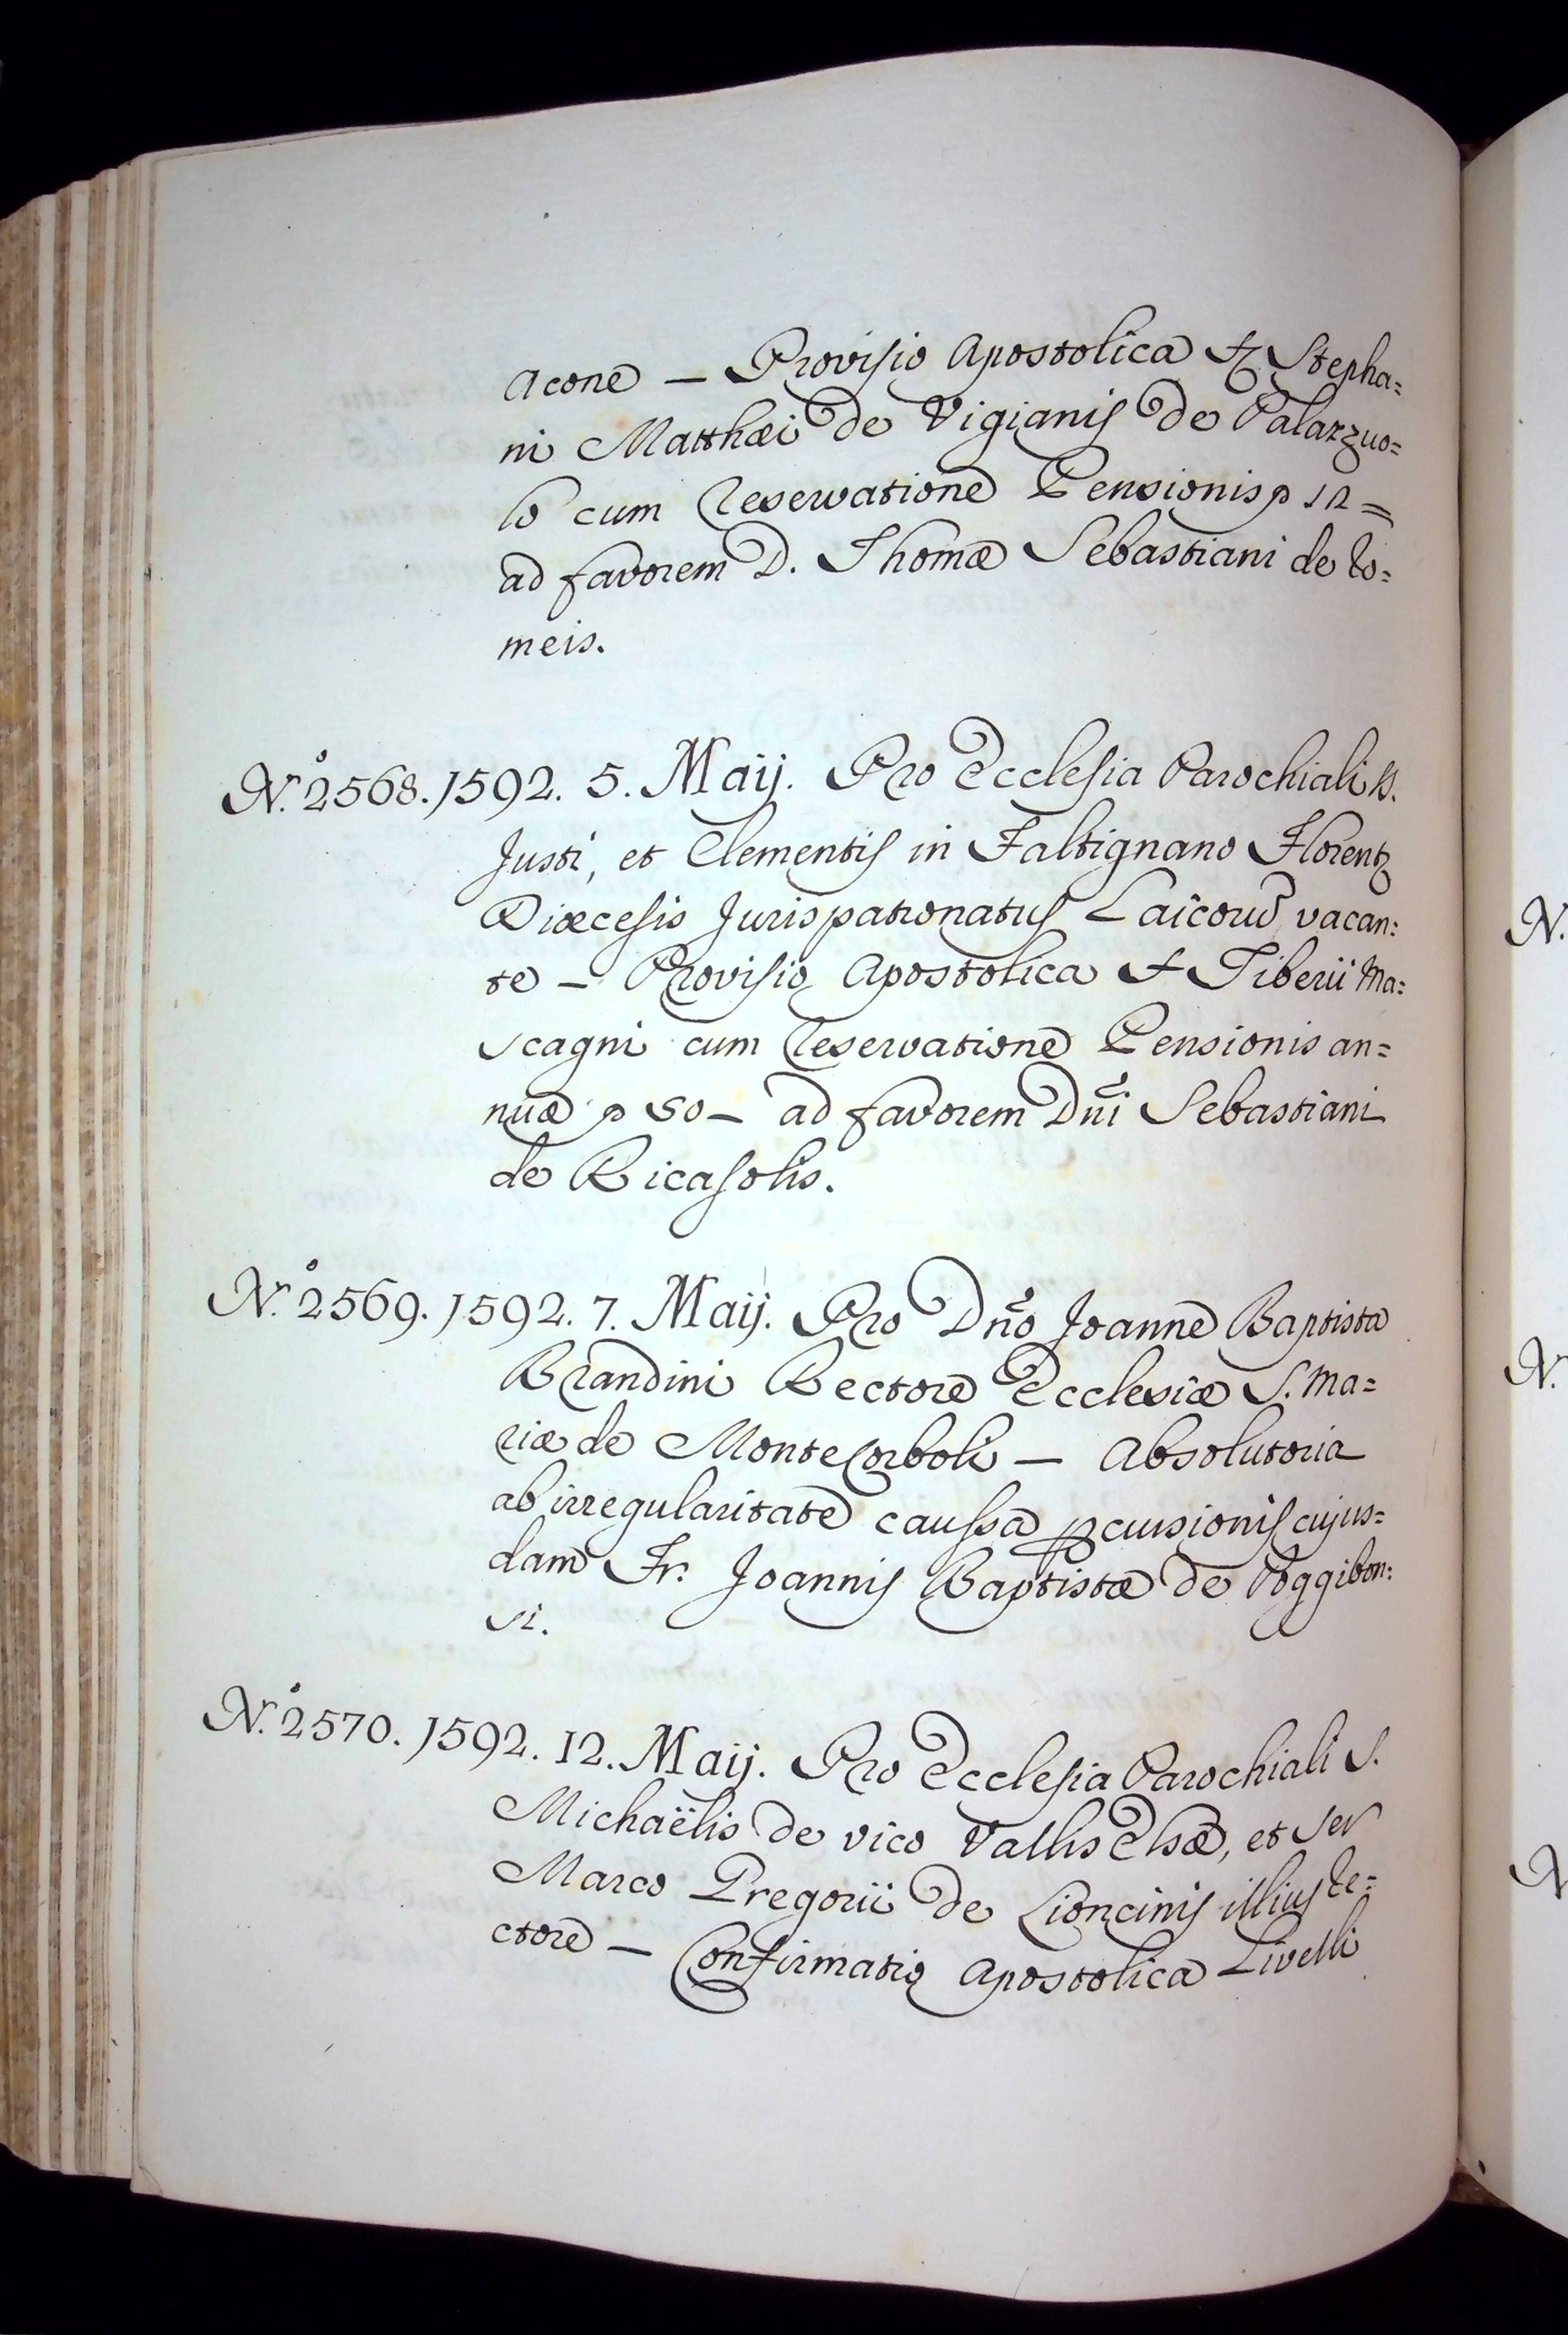 Acone — Provisio Apostolica Fr. Stepha=
ni Matthæi de Vigianis de Palazzuo=
lo cum Reservatione Pensionis 12 =
ad favorem D. Thomæ Sebastiani de Ro=
meis.
N.° 2568. 1592. 5. Maij. Pro Ecclesia Parochiali SS.
Justi, et Clementis in Faltignano Florent
Diœcesis Jurispatronatus Laicorū vacan=
te — Provisio Apostolica Tiberii Ma=
scagni cum Reservatione Pensionis an=
nuæ 50 — ad favorem Dñi Sebastiani
de Ricasolis.
N.° 2569. 1592. 7. Maij. Pro Dño Joanne Baptista
Brandini Rectore Ecclesiæ S. Ma=
riæ de Monte Corboli — Absolutoria
ab irregularitate caussa pcussionis cujus=
dam Fr. Joannis Baptistæ de Poggibon=
si.
N.° 2570. 1592. 12. Maij. Pro Ecclesia Parochiali S.
Michaëlis de vico Vallis Elsæ, et Ser
Marco Gregorii de Lioncinis illius Re=
ctore — Confirmatio Apostolica Livelli
N.
N.
N